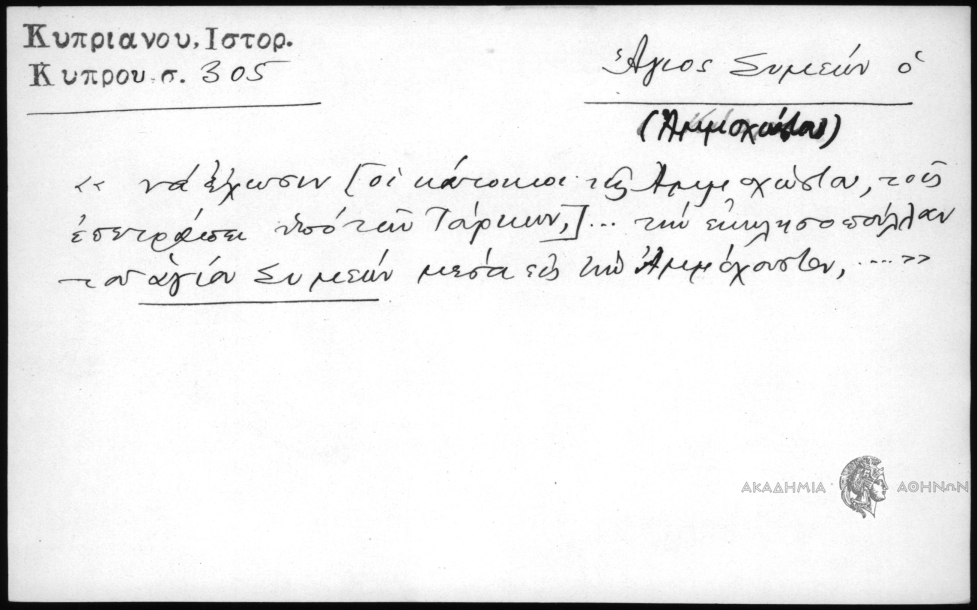 Κυπριανου, Ιστορ.
Κυπρου σ. 305
Ἅγιος Συμεών ὁ
(Ἀμμοχώστου)
« νά ἔχωσιν [οἱ κάτοικοι τῆς Ἀμμοχώστου, τοῖς
ἐπετράπη ὑπό τῶν Τούρκων,] ... τήν ἐκκλησοπούλλαν
τοῦ ἁγίου Συμεών μέσα εἰς τήν Ἀμμόχουστον, .... »
ΑΚΑΔΗΜΙΑ ΑΘΗΝΩΝ